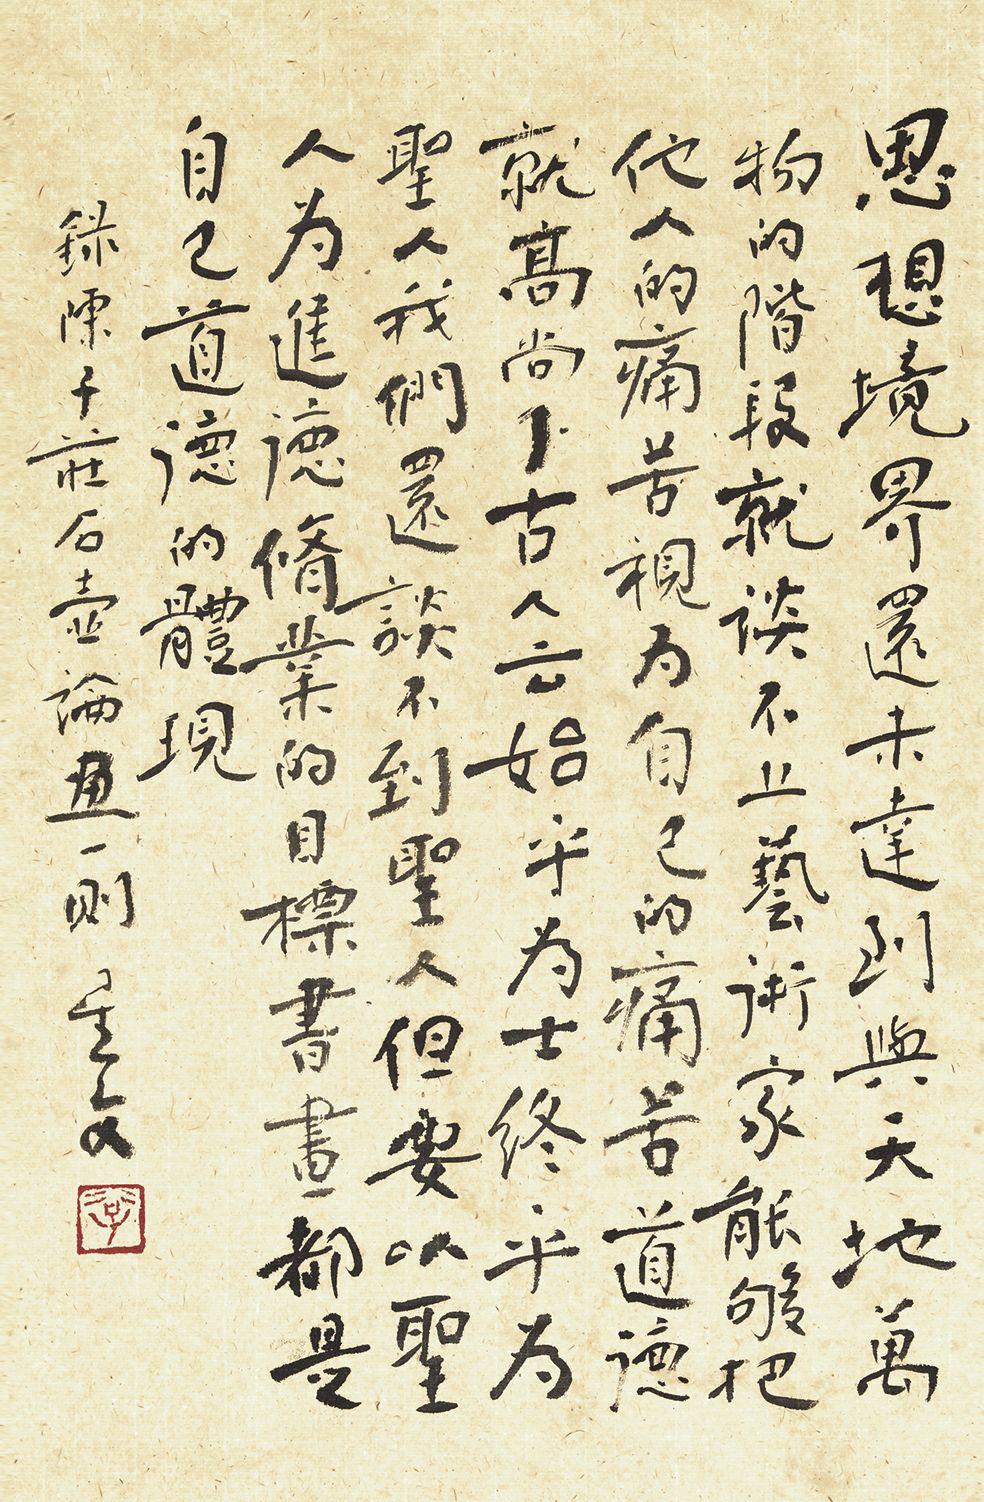 思想境界還未達到與天地萬
物的階段就談不上藝術家能够把
他人的痛苦視为自己的痛苦道德
就高尚了古人云始乎为士終乎为
聖人我們還談不到聖人但要以聖
人为進德脩業的目標書畫都是
自己道德的體現
錄陳子莊石壺論畫一則